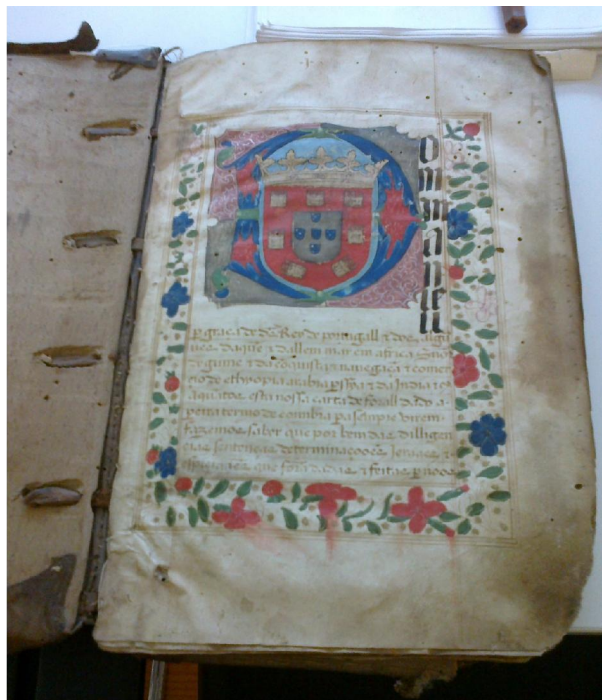 Dom manuel
per graça de d's Rey de portugall & dos algar
ves daquem & dallem mar em africa Sñor
de guine & da comquista & navegaçã & comer
cio de ethyopia arabia perssya & da India
esta nossa carta de forall dado a
pera termo de coimbra pa sempre virem
fazemos saber que por bem das dilligen
cias sentenças determinaçoões &
que foram dadas & feitas p nos